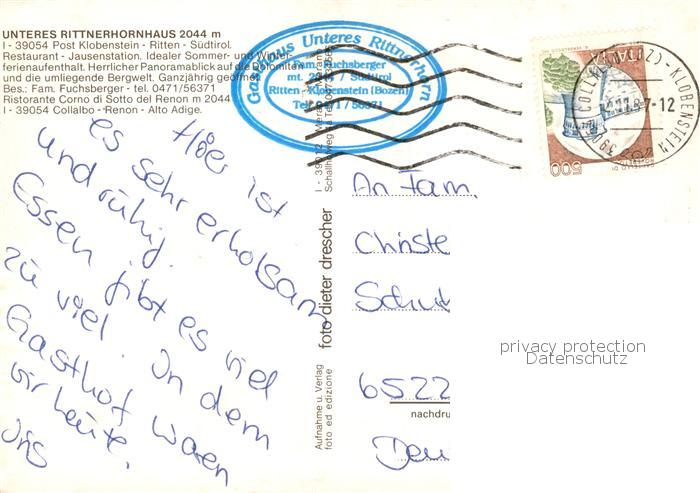 UNTERES RITTNERHORNHAUS 2044 m
I - 39054 Post Klobenstein - Ritten - Südtirol.
Restaurant - Jausenstation. Idealer Sommer- und Winter-
ferienaufenthalt. Herrlicher Panoramablick auf die Dolomiten
und die umliegende Bergwelt. Ganzjährig geöffnet
Bes.: Fam. Fuchsberger - tel. 0471/56371
Ristorante Corno di Sotto del Renon m 2044
I - 39054 Collalbo - Renon - Alto Adige.
Gasthaus Unteres Rittnerhorn
Fam. Fuchsberger
mt. 2044 / Südtirol
Ritten - Klobenstein (Bozen)
Tel. 0471/56371
KLOBENSTEIN
500
Hier ist
es sehr erholsam
und ruhig.
Essen gibt es viel
zu viel. In dem
Gasthof waren
wir heute.
Uns
foto dieter drescher
Aufnahme u. Verlag
foto ed edizione
An Fam.
Christe
Schu
6522
nachdru
Deu
privacy protection
Datenschutz